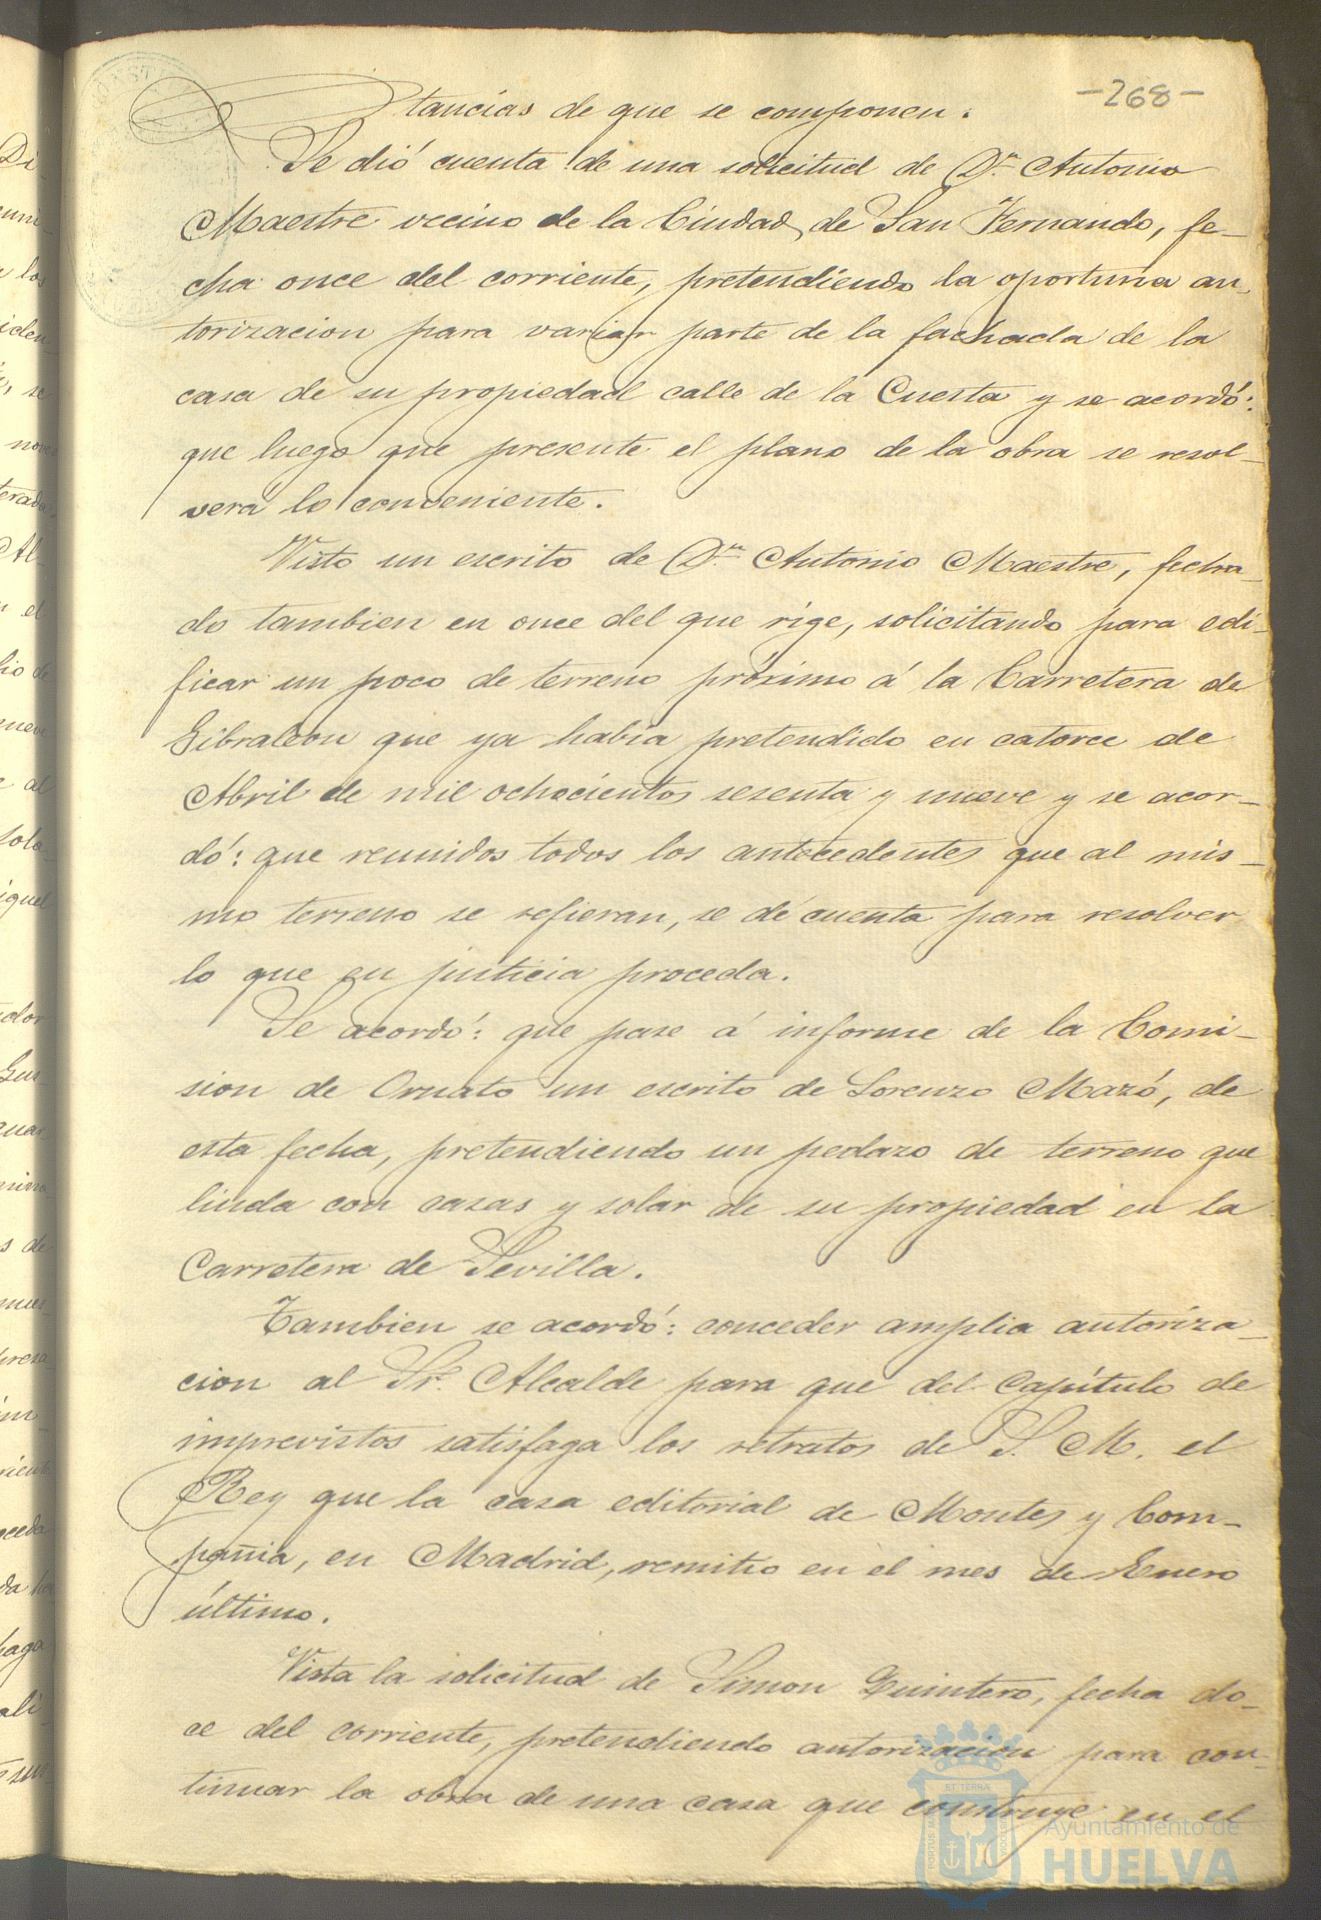 -268-
tancias de que se componen.
Se dió cuenta de una solicitud de Dn. Antonio
Maestre vecino de la Ciudad de San Fernando, fe-
cha once del corriente, pretendiendo la oportuna au-
torizacion para variar parte de la fachada de la
casa de su propiedad calle de la Cuesta y se acordó:
que luego que presente el plano de la obra se resol-
verá lo conveniente.
Visto un escrito de Dn. Antonio Maestre, fecha-
do tambien en once del que rige, solicitando para edi-
ficar un poco de terreno próximo á la Carretera de
Gibraleon que ya habia pretendido en catorce de
Abril de mil ochocientos sesenta y nueve y se acor-
dó: que reunidos todos los antecedentes que al mis-
mo terreno se refieran, se dé cuenta para resolver
lo que en justicia proceda.
Se acordó: que pase á informe de la Comi-
sion de Ornato un escrito de Lorenzo Mazó, de
esta fecha, pretendiendo un pedazo de terreno que
linda con casas y solar de su propiedad en la
Carretera de Sevilla.
Tambien se acordó: conceder amplia autoriza-
cion al Sr. Alcalde para que del Capítulo de
imprevistos satisfaga los retratos de S. M. el
Rey que la casa editorial de Montes y Com-
pañia, en Madrid, remitio en el mes de Enero
último.
Vista la solicitud de Simon Quintero, fecha do-
ce del corriente, pretendiendo autorizacion para con-
tinuar la obra de una casa que construye en el
Ayuntamiento de
HUELVA